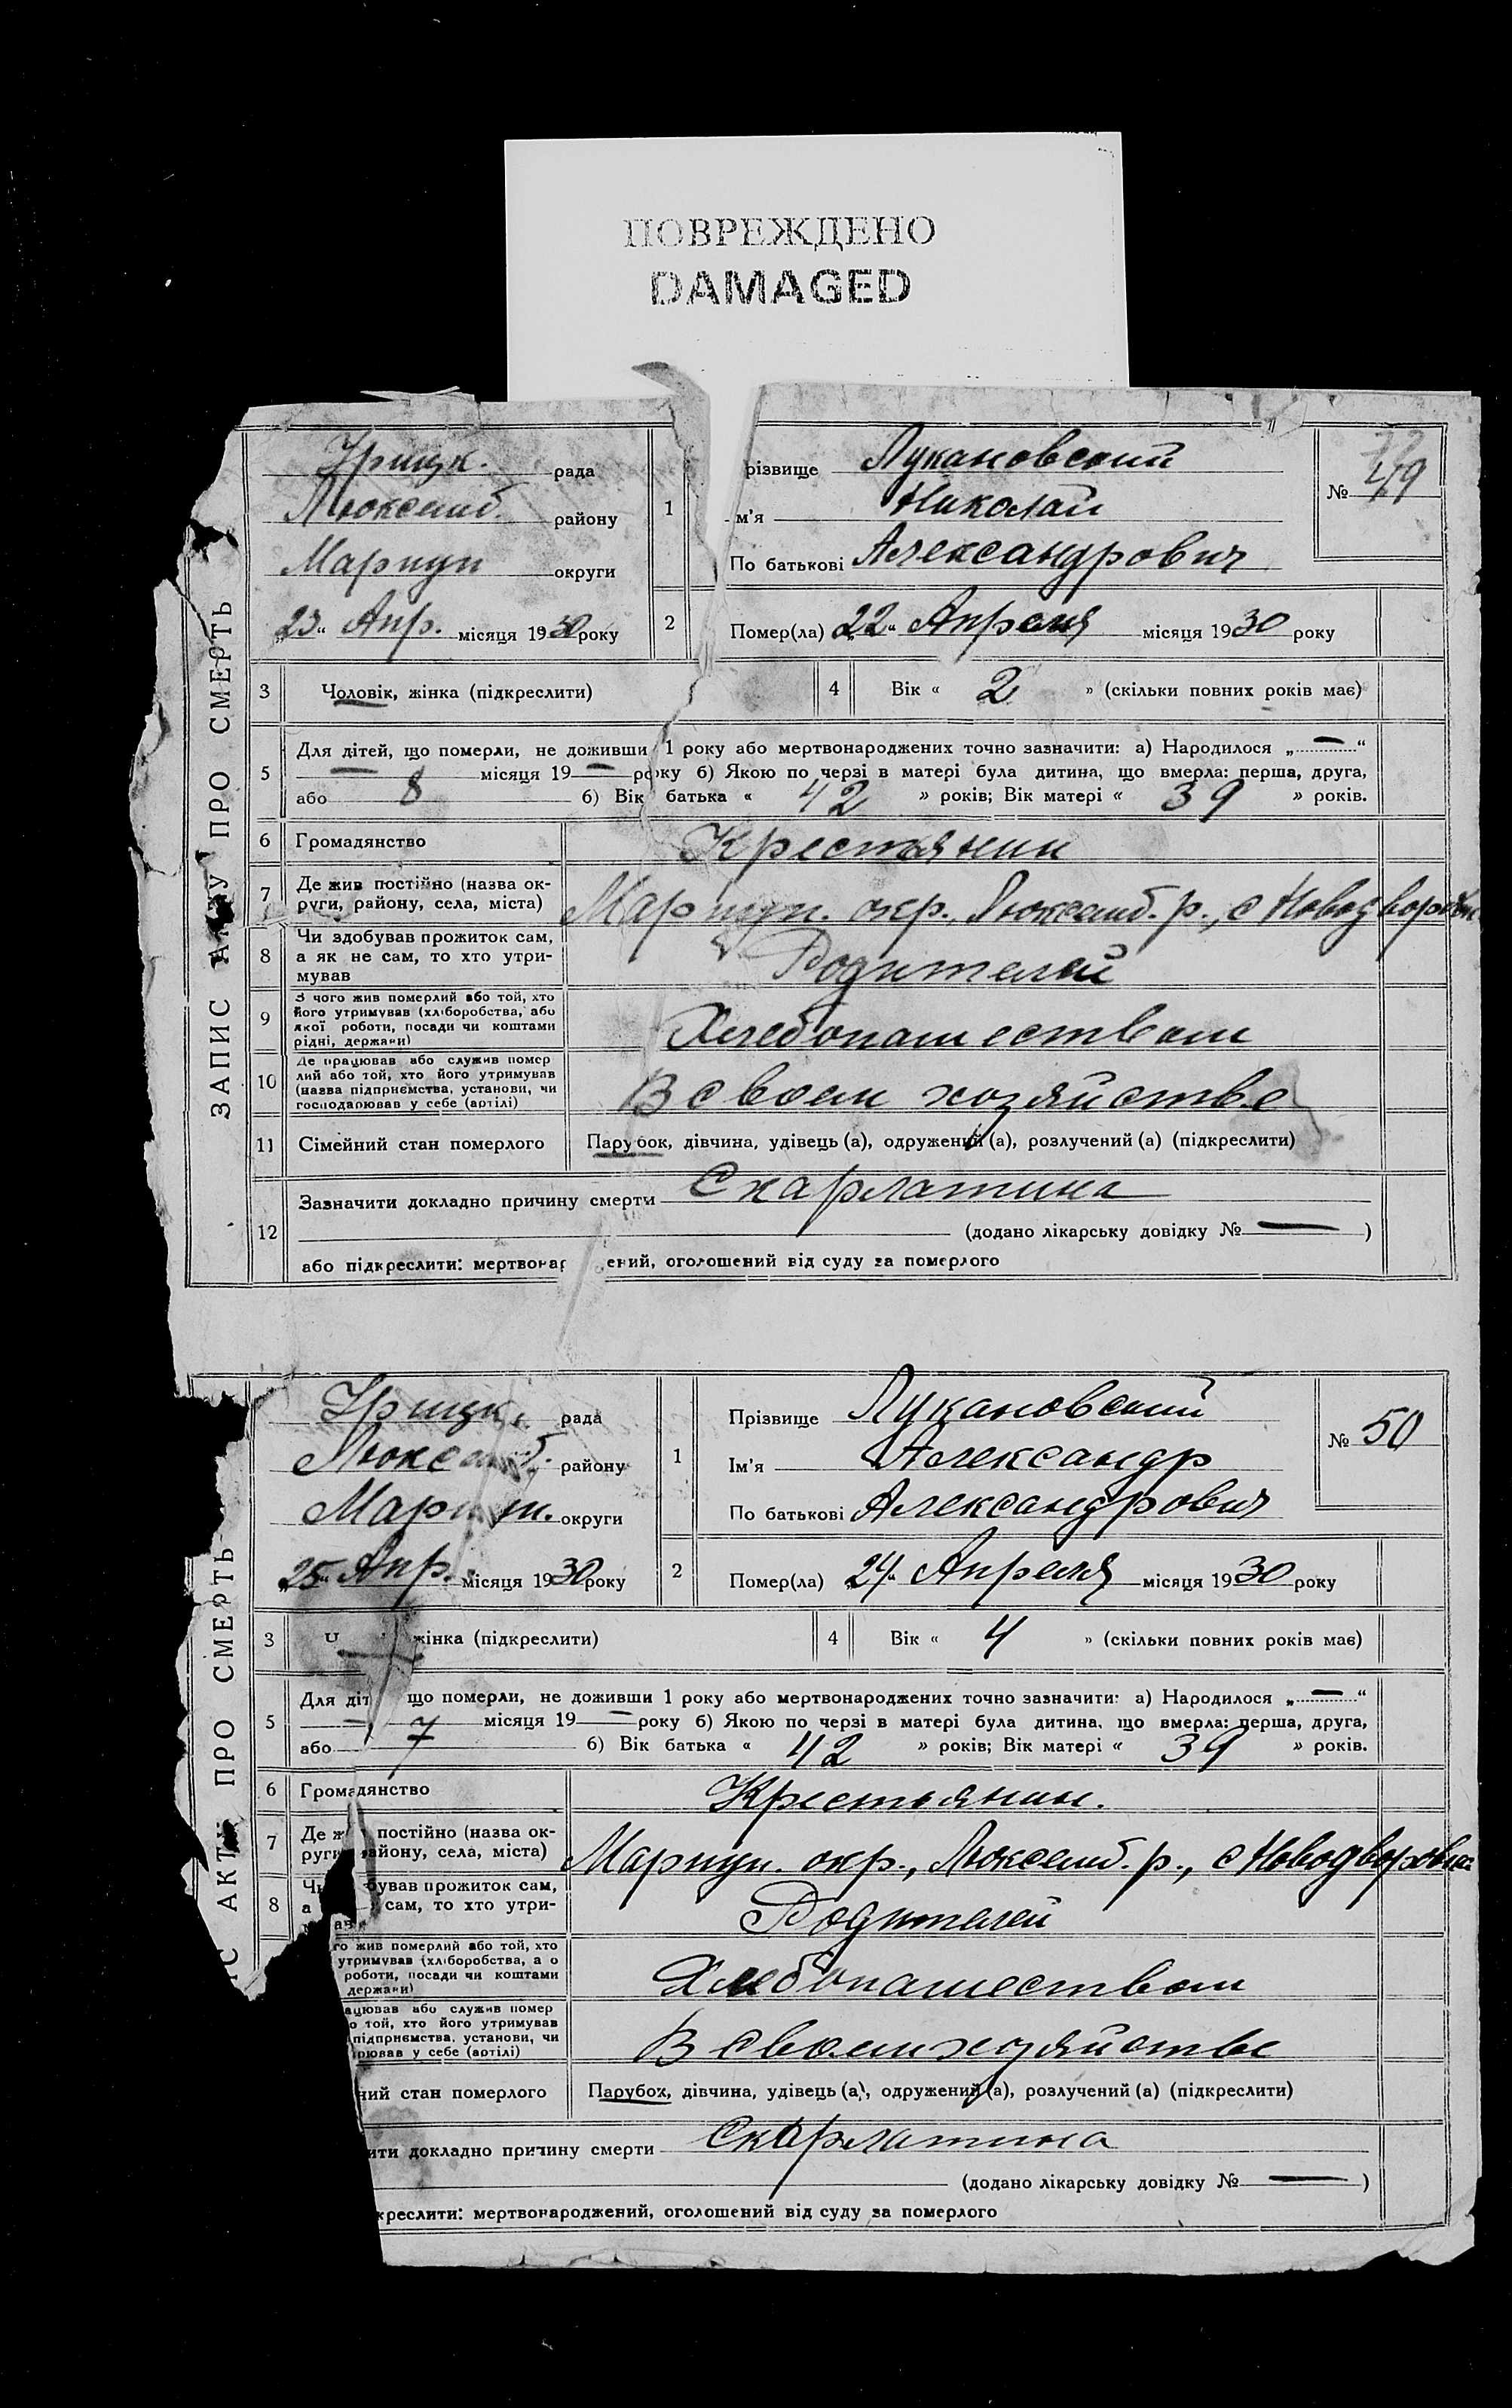 ПОВРЕЖДЕНО
DAMAGED
ЗАПИС АКТУ ПРО СМЕРТЬ
Урицк. рада
Люксемб. району
Мариуп округи
„23“ Апр. місяця 1930 року
1
різвище Лукановский
м'я Николай
По батькові Александрович
№ 49
2
Помер(ла) „22“ Апреля місяця 1930 року
3 Чоловік, жінка (підкреслити)
4 Вік « 2 » (скільки повних років має)
5 Для дітей, що померли, не доживши 1 року або мертвонароджених точно зазначити: а) Народилося „ — “
— місяця 19 — року б) Якою по черзі в матері була дитина, що вмерла: перша, друга,
або 8 б) Вік батька « 42 » років; Вік матері « 39 » років.
6 Громадянство Крестьянин
7 Де жив постійно (назва ок-
руги, району, села, міста) Мариуп. окр., Люксемб. р., с Новодворовка
8 Чи здобував прожиток сам,
а як не сам, то хто утри-
мував Родителей
9 З чого жив померлий або той, хто
його утримував (хліборобства, або
якої роботи, посади чи коштами
рідні, держави) Хлебопашеством
10 Де працював або служив помер
лий або той, хто його утримував
(назва підприємства, установи, чи
господарював у себе (артілі) В своем хозяйстве
11 Сімейний стан померлого Парубок, дівчина, удівець (а), одружений (а), розлучений (а) (підкреслити)
12 Зазначити докладно причину смерти Скарлатина
(додано лікарську довідку № — )
або підкреслити: мертвонар ений, оголошений від суду за померлого
С АКТУ ПРО СМЕРТЬ
Урицк. рада
Люксемб. району
Мариуп. округи
„25“ Апр. місяця 1930 року
1
Прізвище Лукановский
Ім'я Александр
По батькові Александрович
№ 50
2
Помер(ла) 24“ Апреля місяця 1930 року
3 Ч жінка (підкреслити)
4 Вік « 4 » (скільки повних років має)
5 Для діт що померли, не доживши 1 року або мертвонароджених точно зазначити: а) Народилося „ — “
— місяця 19 — року б) Якою по черзі в матері була дитина, що вмерла: перша, друга,
або 7 б) Вік батька « 42 » років; Вік матері « 39 » років.
6 Громадянство Крестьянин.
7 Де ж постійно (назва ок-
руги айону, села, міста) Мариуп. окр., Люксемб. р., с Новодворовка
8 Чи бував прожиток сам,
а сам, то хто утри-
ав Родителей
го жив померлий або той, хто
утримував (хліборобства, а о
роботи, посади чи коштами
держави) Хлебопашеством
ацював або служив помер
о той, хто його утримував
підприємства, установи, чи
рював у себе (артілі) В своем хозяйстве
ний стан померлого Парубок, дівчина, удівець (а), одружений (а), розлучений (а) (підкреслити)
ити докладно причину смерти Скарлатина
(додано лікарську довідку № — )
креслити: мертвонароджений, оголошений від суду за померлого